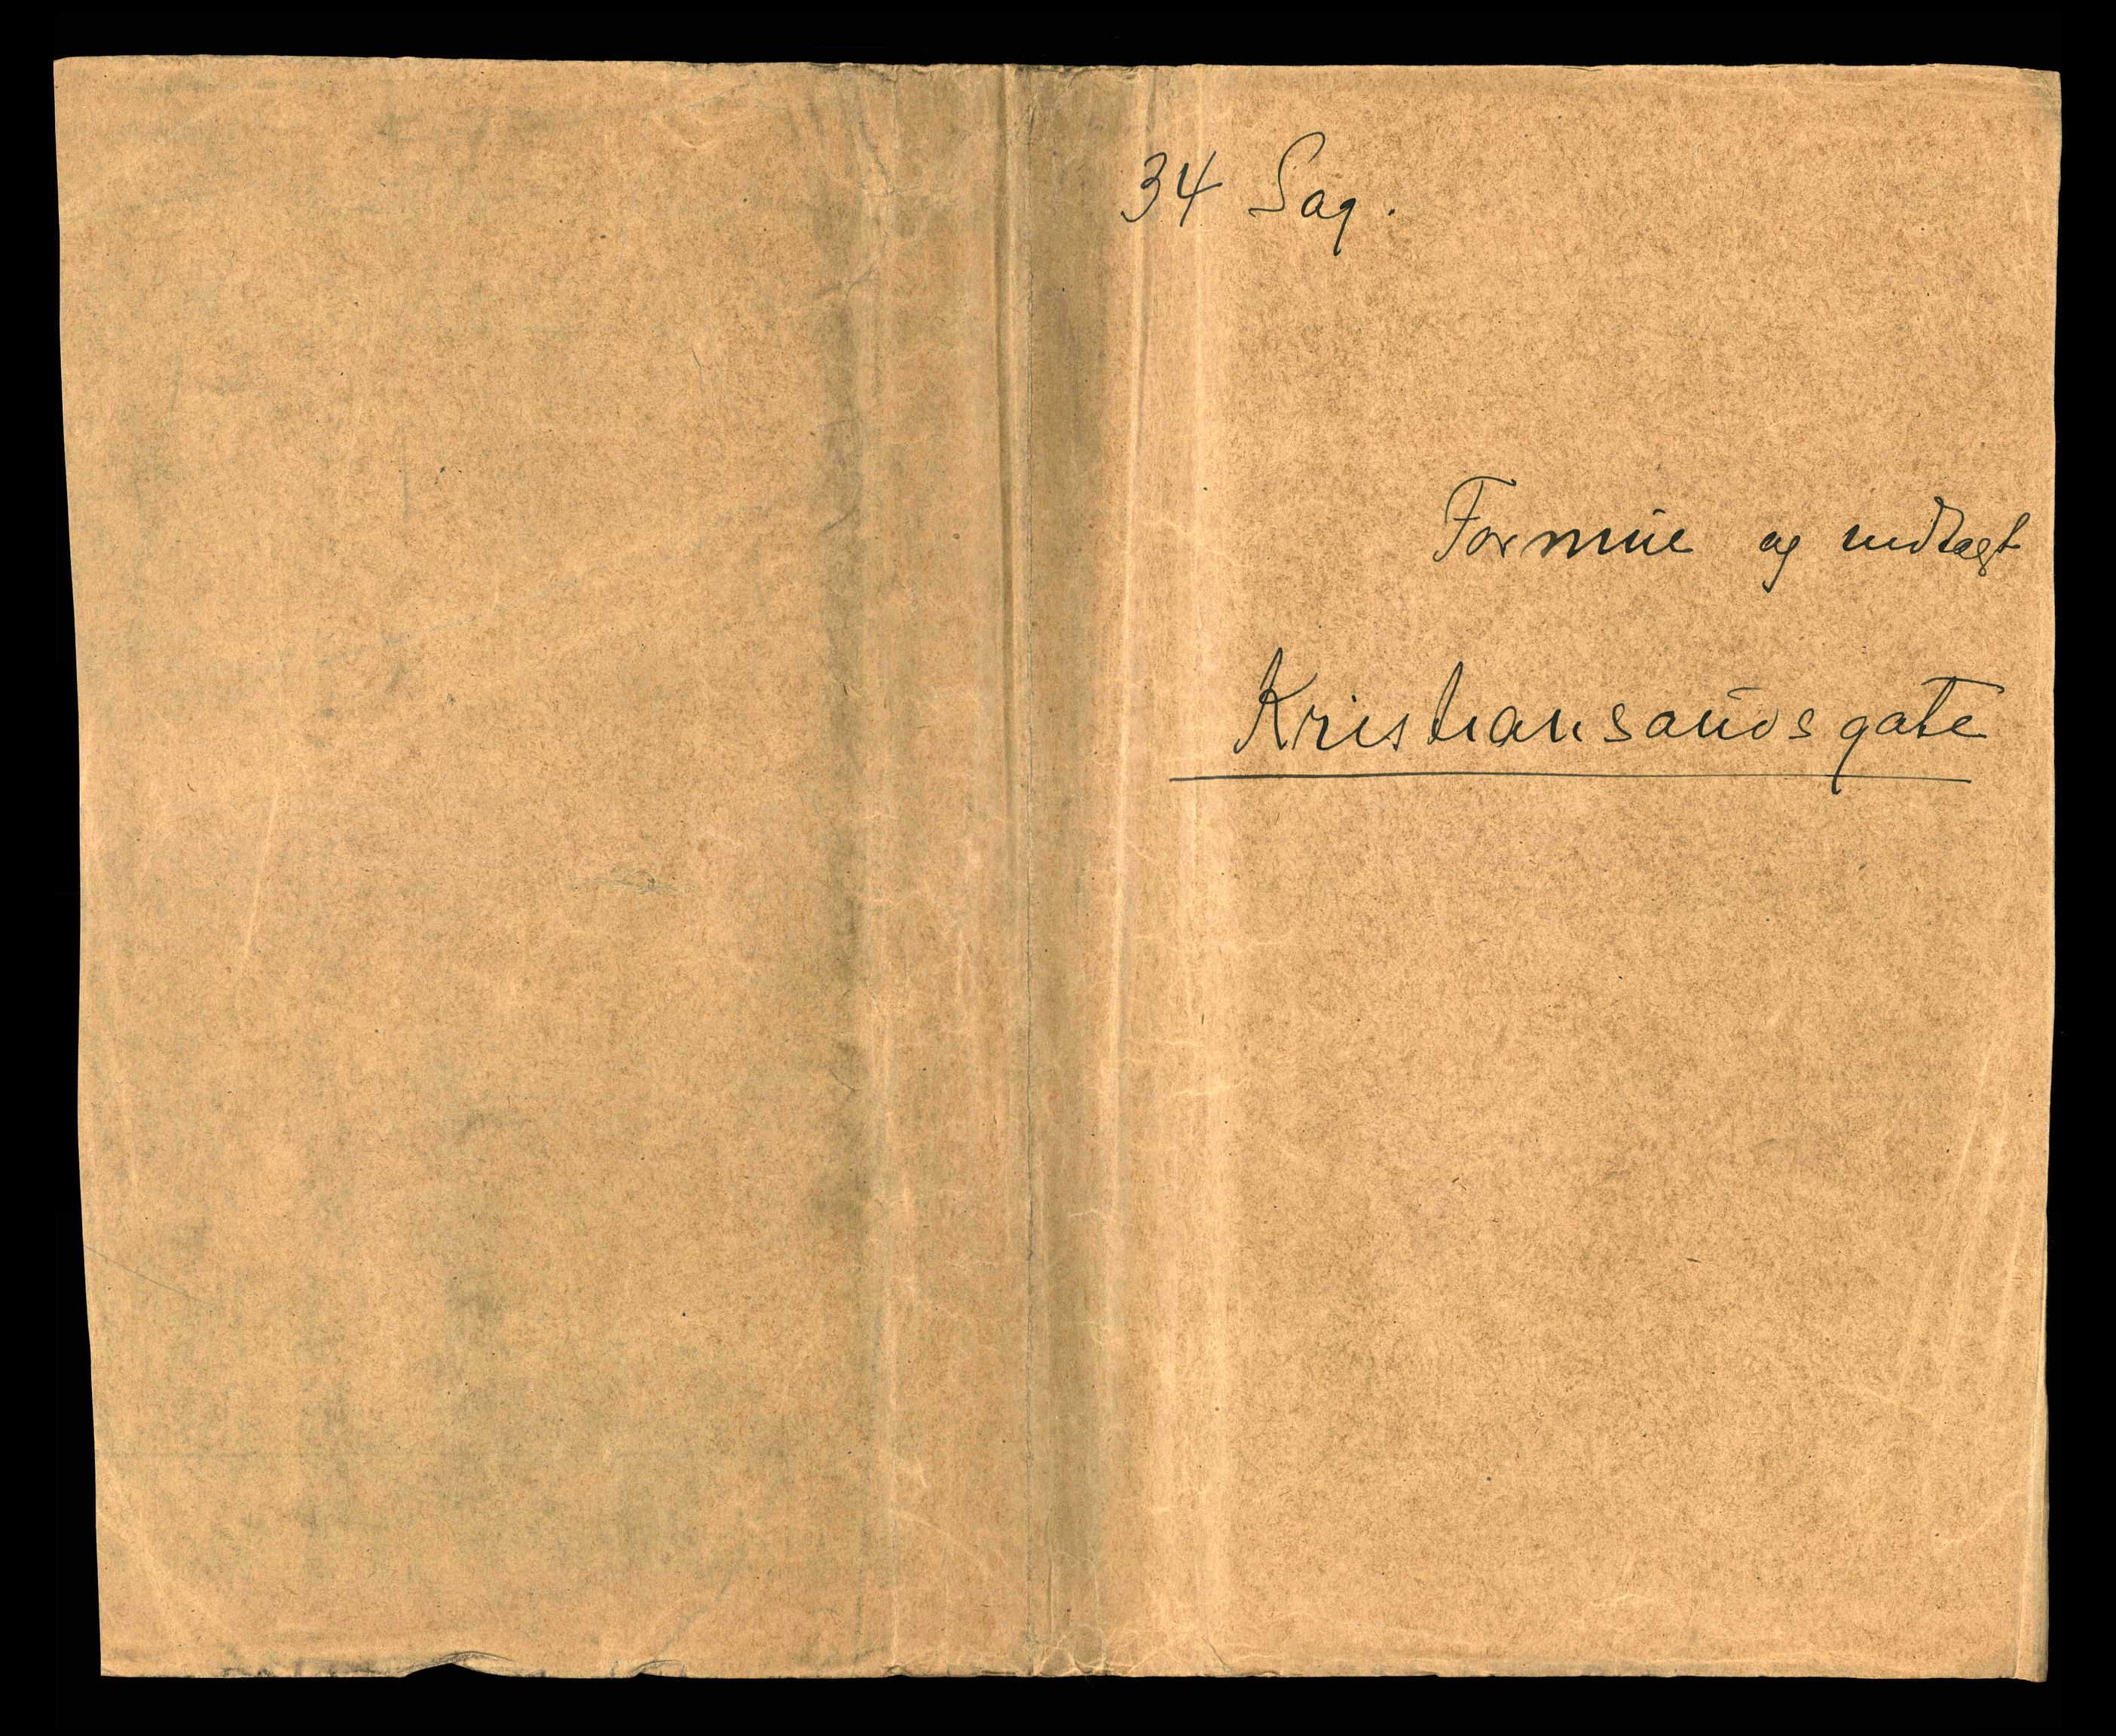 34 Lag.
Formue og indtægt
Kristiansandsgate